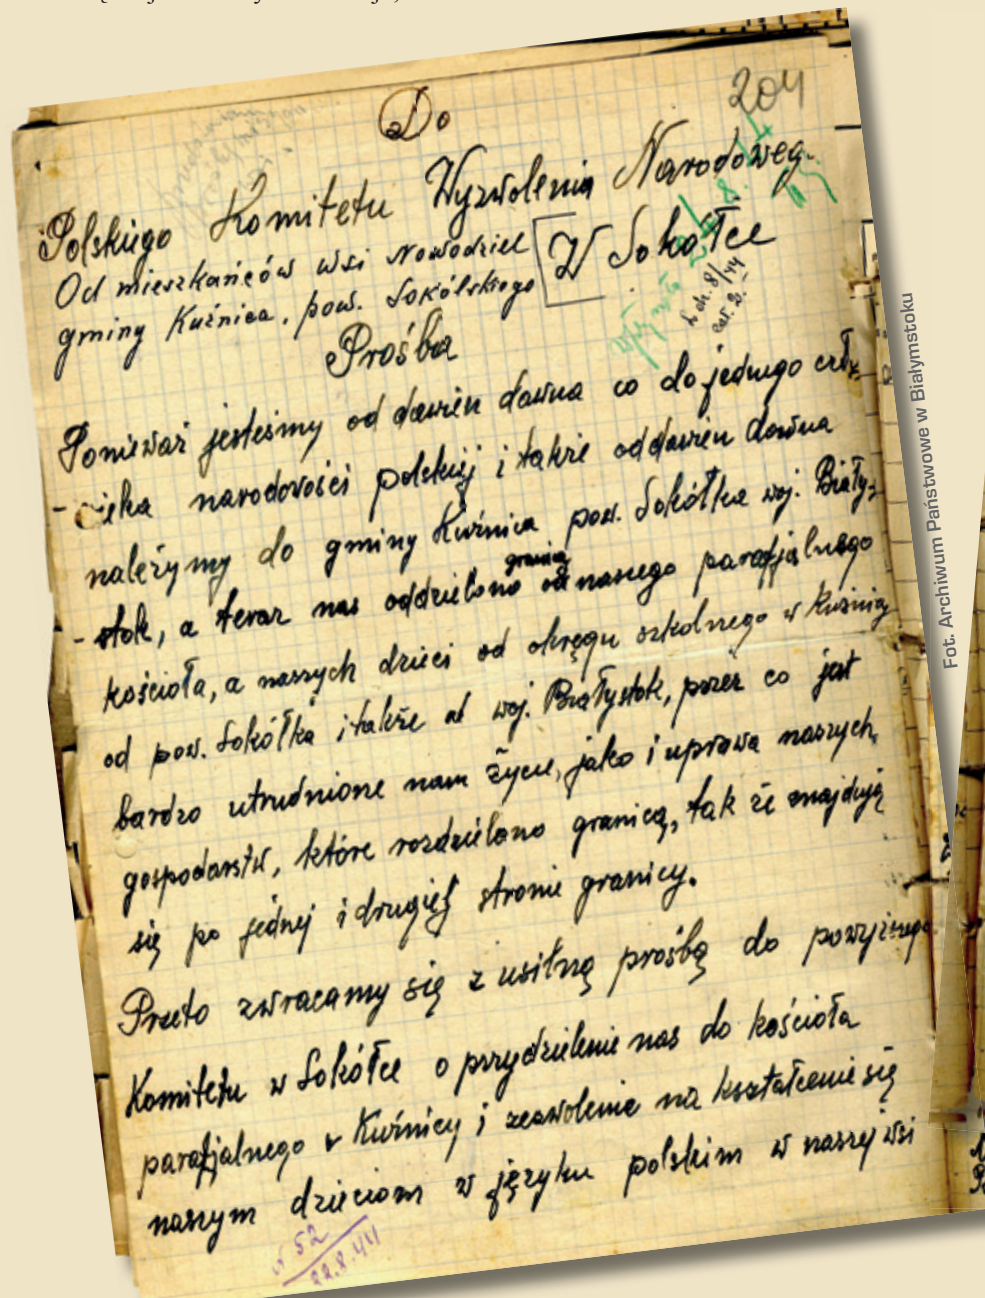 204
Do
Polskiego Komitetu Wyzwolenia Narodoweg.
W Sokółce
Od mieszkańców wsi Nowodziel
gminy Kuźnica, pow. Sokólskiego
L. dz. 8/44
Prośba
Ponieważ jesteśmy od dawien dawna co do jednego czło-
-wieka narodowości polskiej i także oddawien dawna
należymy do gminy Kuźnica pow. Sokółka woj. Biały-
-stok, a teraz nas oddzielono granicą od naszego parafjalnego
kościoła, a naszych dzieci od okręgu szkolnego w Kuźnicy
od pow. Sokółka i także od woj. Białystok, przez co jest
bardzo utrudnione nam życie, jako i uprawa naszych
gospodarstw, które rozdzielono granicą, tak że znajdują
się po jednej i drugiej stronie granicy.
Przeto zwracamy się z usilną prośbą do powyższego
Komitetu w Sokółce o przydzielenie nas do kościoła
parafjalnego w Kuźnicy i zezwolenie na kształcenie się
naszym dzieciom w języku polskim w naszej wsi
N 52
22.8.44
Fot. Archiwum Państwowe w Białymstoku